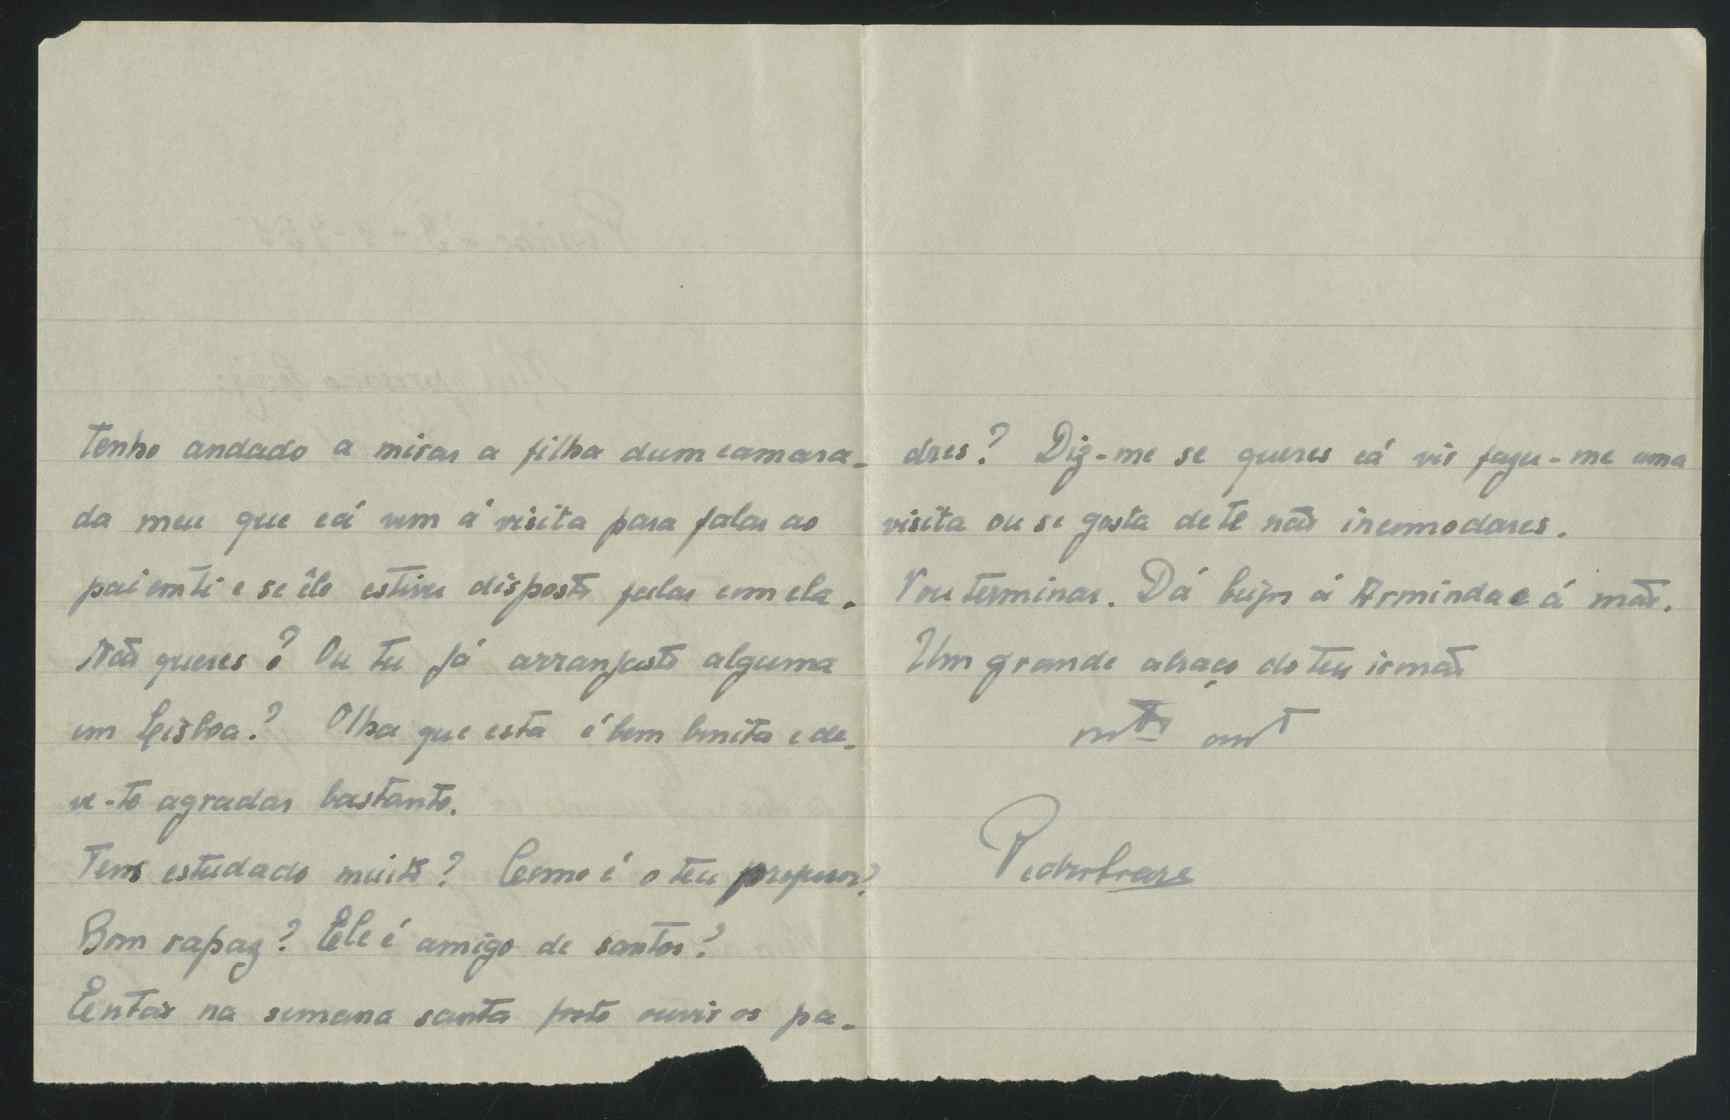 Tenho andado a mirar a filha dum camara-
da meu que cá vem á visita para falar ao
pai em ti e se êle estiver disposto falar com ela.
Não queres? Ou tu já arranjaste alguma
em Lisboa? Olha que esta é bem bonita e de-
ve-te agradar bastante.
Tens estudado muito? Como é o teu professor?
Bom rapaz? Ele é amigo de santos?
Então na semana santa foste ouvir os pa-
dres? Diz-me se queres cá vir fazer-me uma
visita ou se gosta de te não incomodares.
Vou terminar. Dá beijos á Arminda e á mãe.
Um grande abraço do teu irmão
mto amt
Pedro Soares